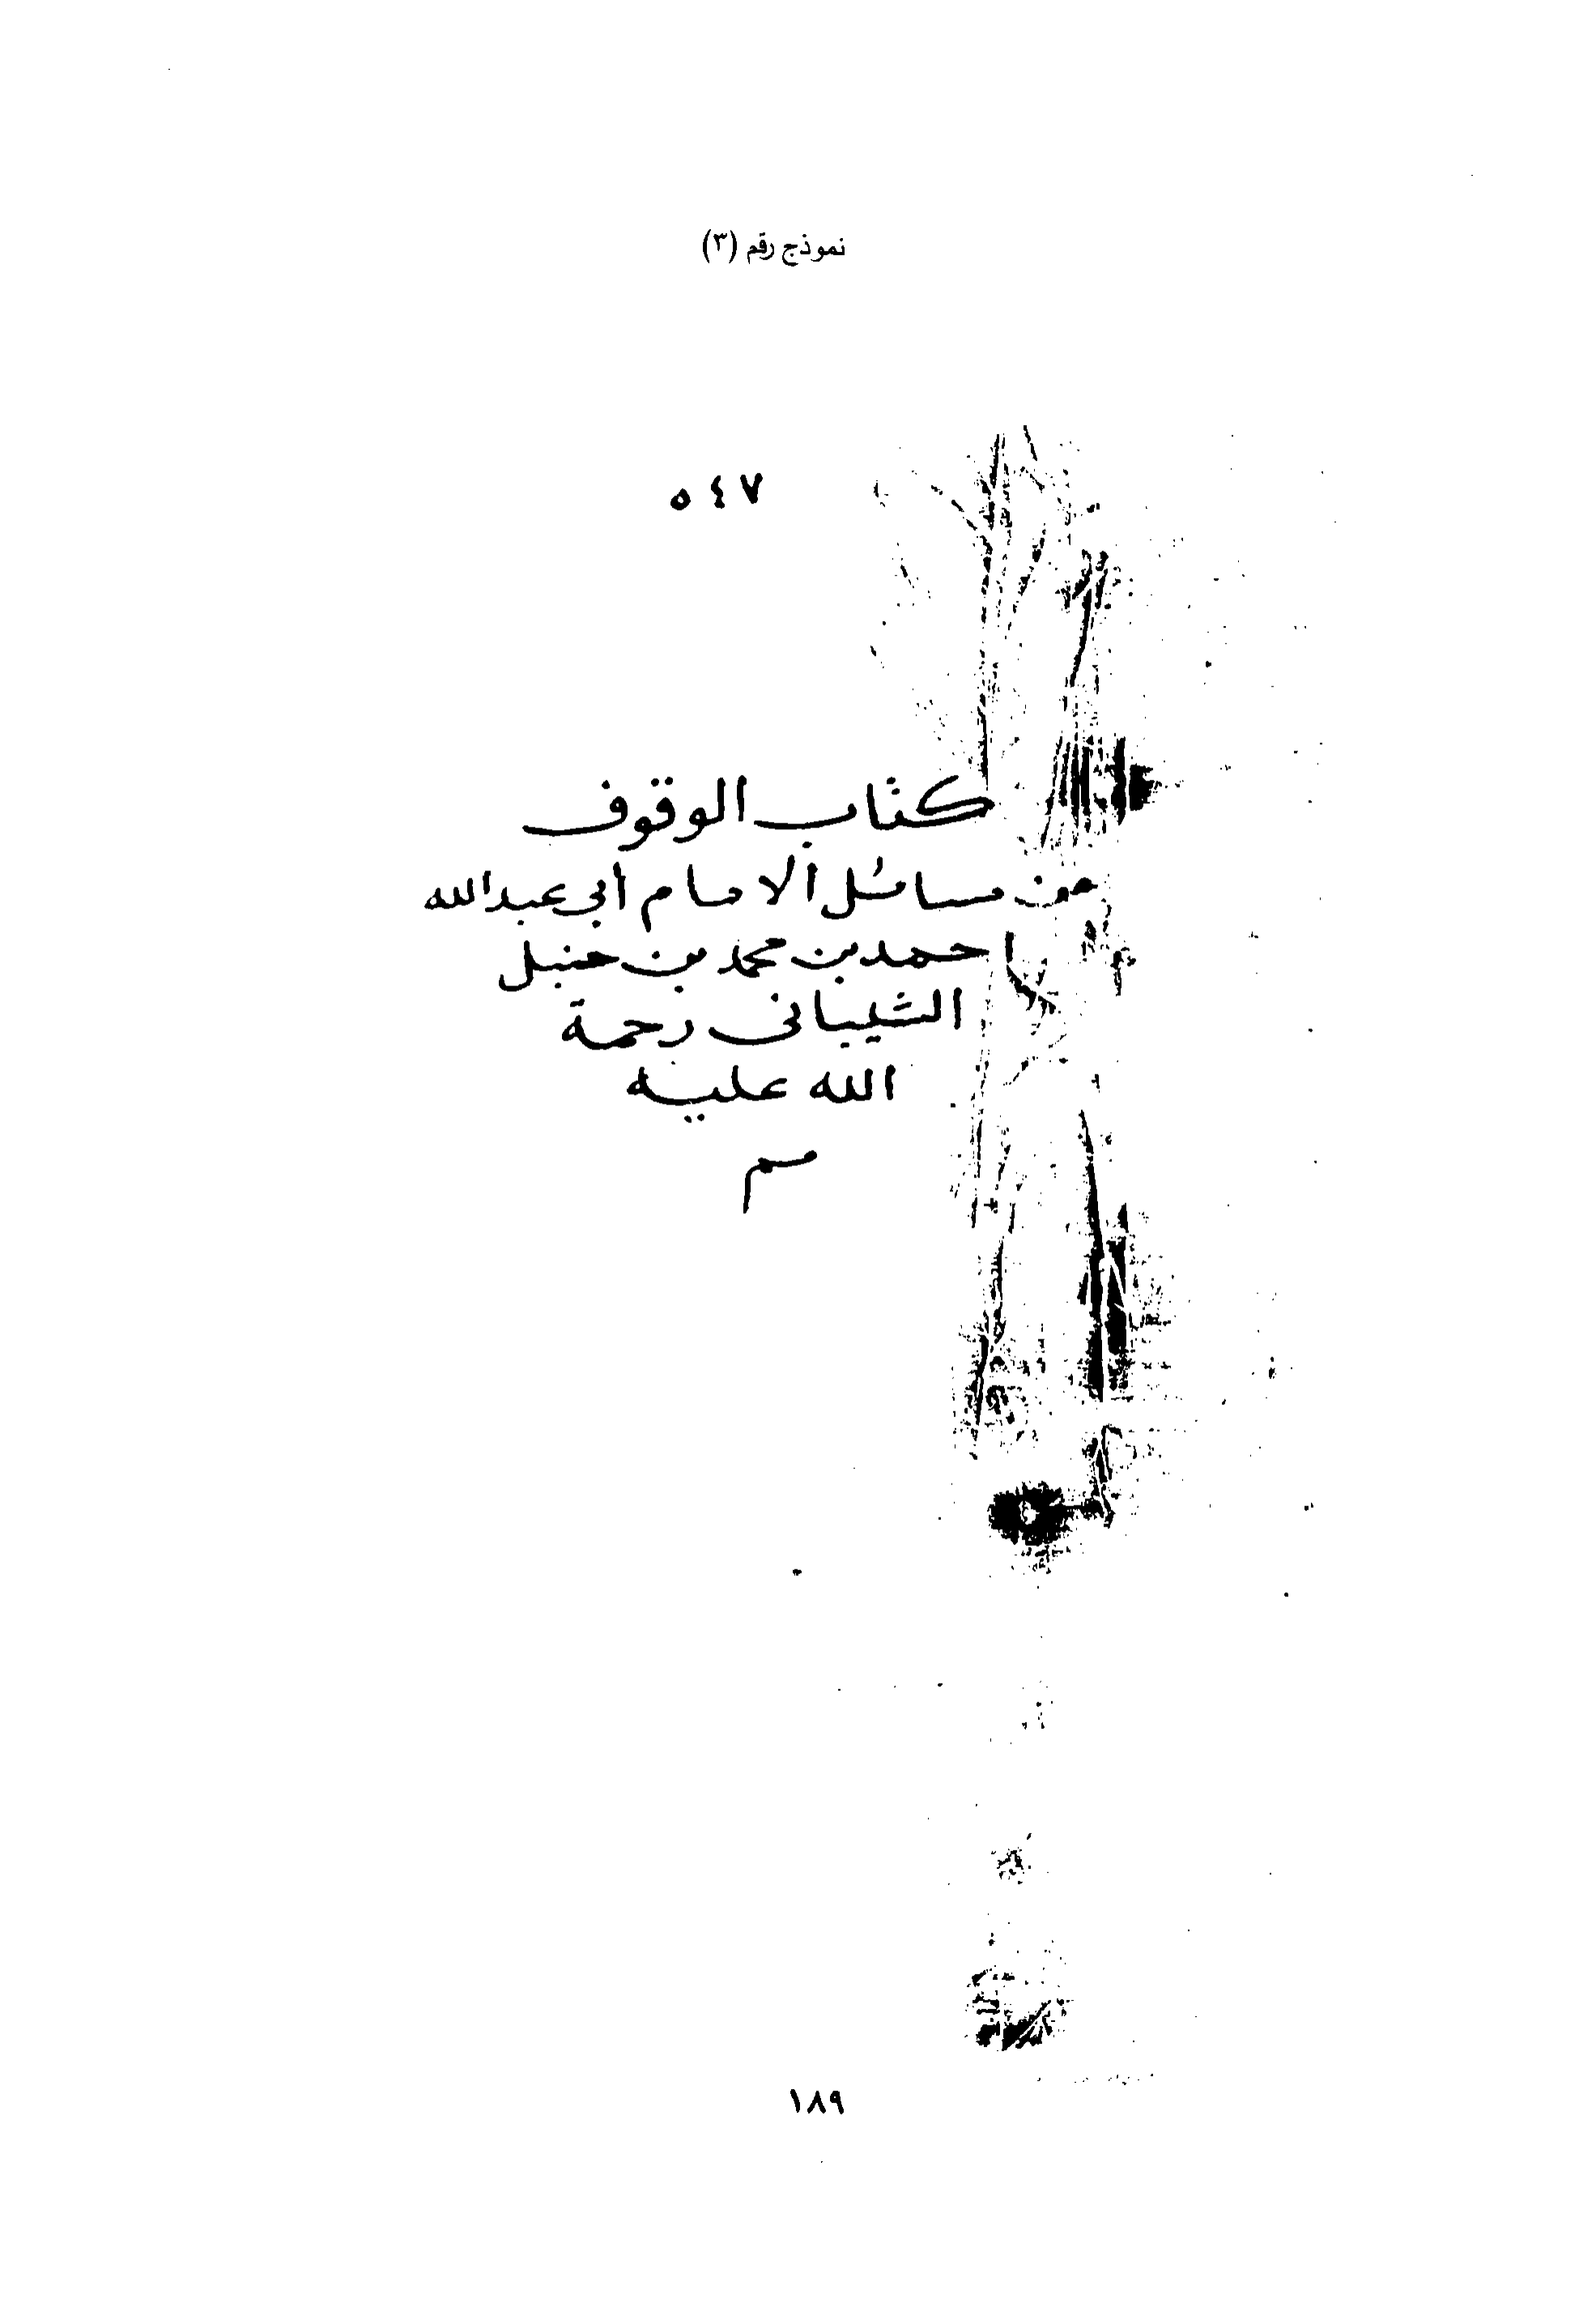 نموذج رقم (٣)
٥٤٧
كتاب الوقوف
من مسائل الامام أبي عبدالله
احمد بن محمد بن حنبل
الشيباني رحمة
الله عليه
م
١٨٩